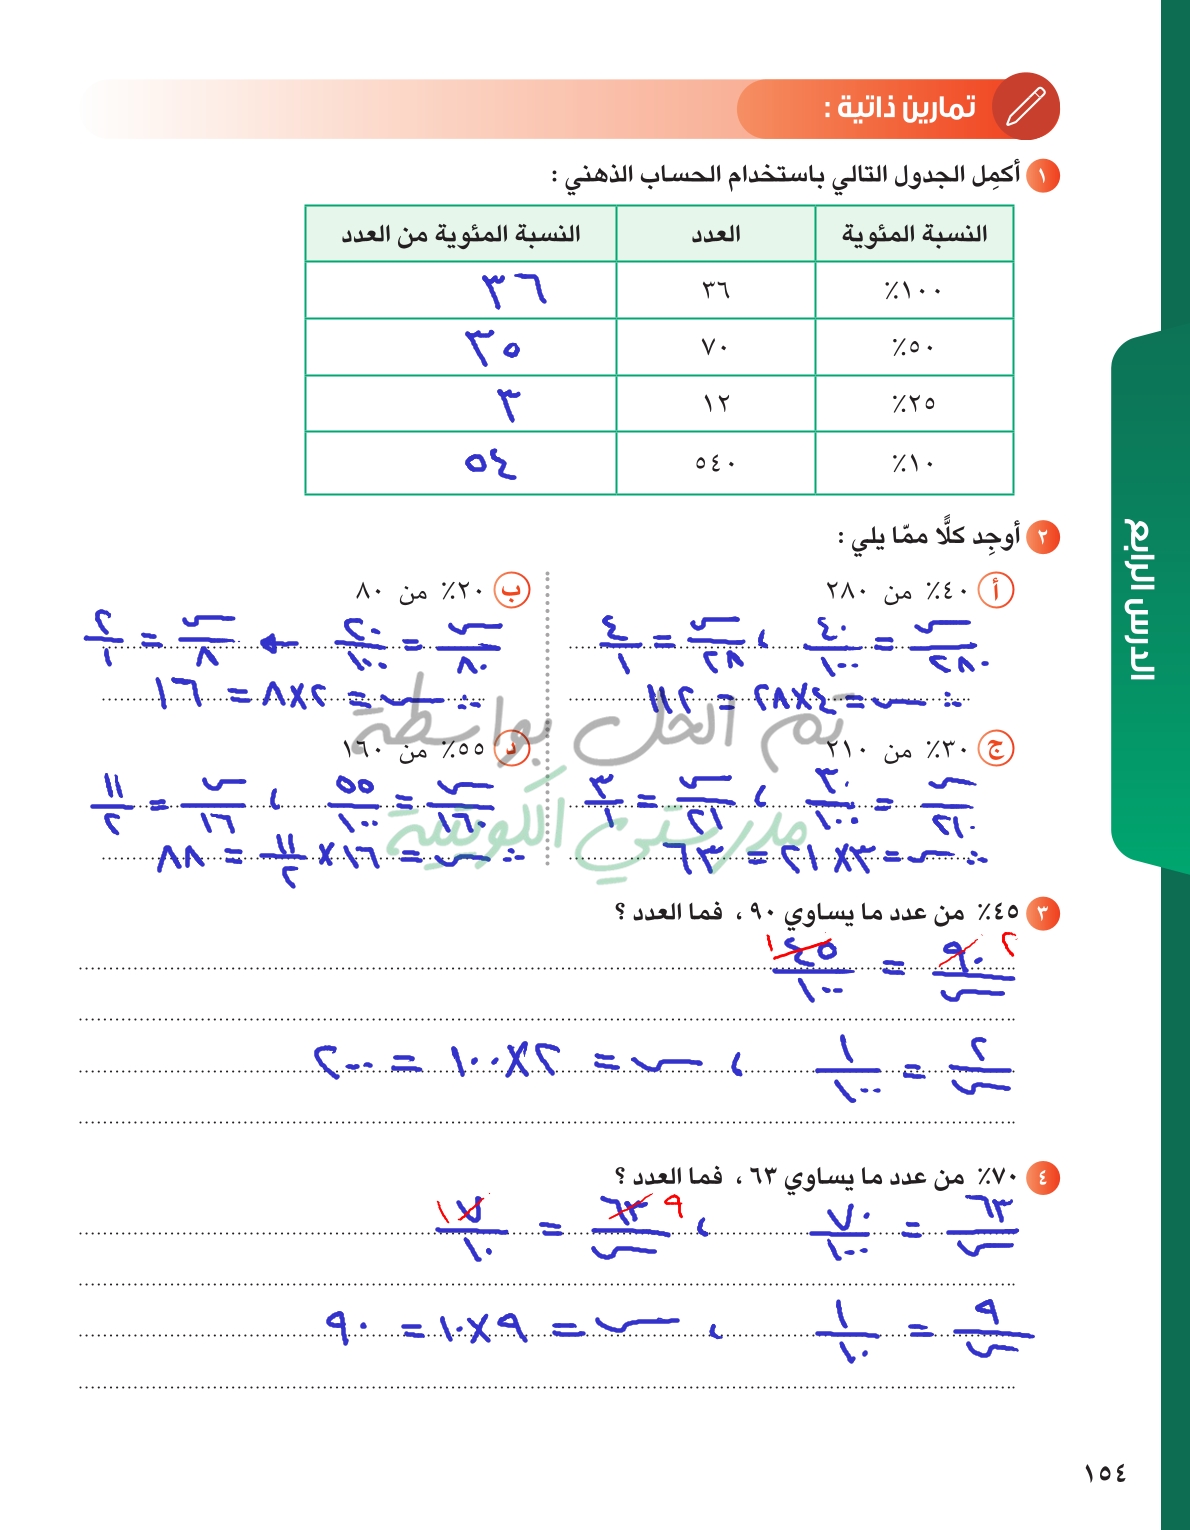 تمارين ذاتية :
١ أكمِل الجدول التالي باستخدام الحساب الذهني :
النسبة المئوية العدد النسبة المئوية من العدد
١٠٠٪ ٣٦ ٣٦
٥٠٪ ٧٠ ٣٥
٢٥٪ ١٢ ٣
١٠٪ ٥٤٠ ٥٤
٢ أوجِد كلًّا ممّا يلي :
أ ٤٠٪ من ٢٨٠
س/٢٨٠ = ٤٠/١٠٠ ، س/٢٨ = ٤/١
∴ س = ٤×٢٨ = ١١٢
ب ٢٠٪ من ٨٠
س/٨٠ = ٢٠/١٠٠ ← س/٨ = ٢/١
∴ س = ٢×٨ = ١٦
ج ٣٠٪ من ٢١٠
س/٢١٠ = ٣٠/١٠٠ ، س/٢١ = ٣/١
∴ س = ٣×٢١ = ٦٣
د ٥٥٪ من ١٦٠
س/١٦٠ = ٥٥/١٠٠ ، س/١٦ = ١١/٢
∴ س = ١٦×١١/٢ = ٨٨
تم الحل بواسطة
مدرستي الكويتية
٣ ٤٥٪ من عدد ما يساوي ٩٠ ، فما العدد ؟
٩٠/س ٢ = ٤٥/١٠٠ ١
٢/س = ١/١٠٠ ، س = ٢×١٠٠ = ٢٠٠٠
٤ ٧٠٪ من عدد ما يساوي ٦٣ ، فما العدد ؟
٦٣/س = ٧٠/١٠٠ ، ٩ ٦٣/س = ٧/١٠ ١
٩/س = ١/١٠ ، س = ٩×١٠ = ٩٠
الدرس الرابع
١٥٤